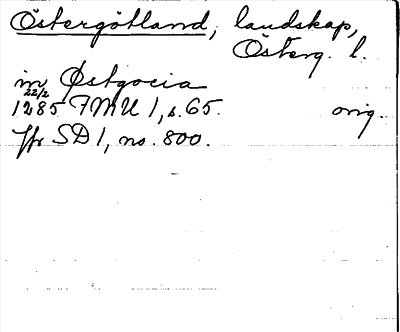 Östergötland, landskap,
Österg. l.
in Østgocia
22/2
1285 FMU 1, s. 65. orig.
Jfr SD 1, no. 800.